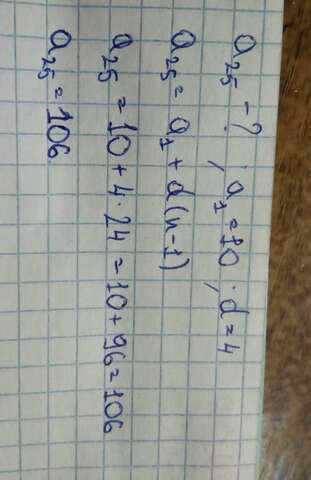 a₂₅ - ? ; a₁ = 10 ; d = 4
a₂₅ = a₁ + d(n-1)
a₂₅ = 10 + 4 · 24 = 10 + 96 = 106
a₂₅ = 106.